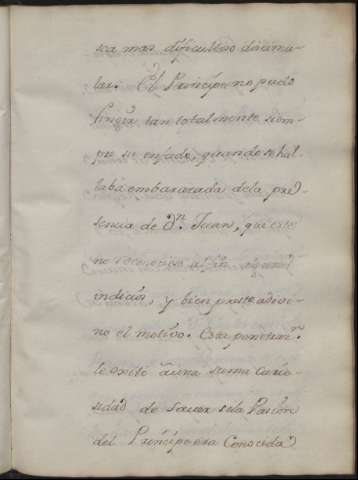 sea mas dificultoso disimu-
lar. El Principe no pudo
fingir tan totalmente siem-
pre su enfado, quando se hal-
laba embarazada de la pre-
sencia de Dn. Juan, que este
no reconociese al fin algunos
indicios, y bien presto adivi-
no el motivo. Esta penetran.n
le exito à una suma curio-
sidad de saver si la Pasion
del Principe era Conocida